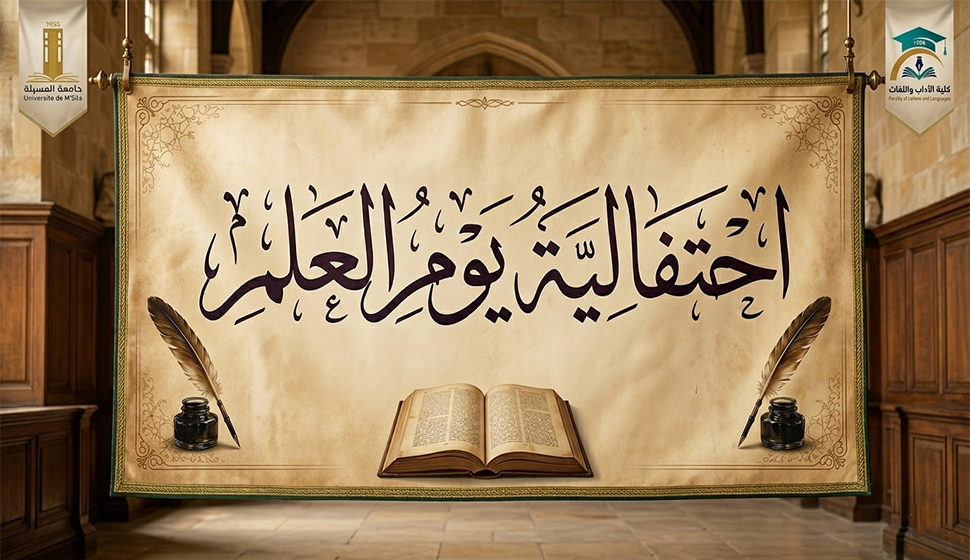 جامعة المسيلة
Université de M'Sila
كلية الآداب واللغات
Faculty of Letters and Languages
احتفالية يوم العلم